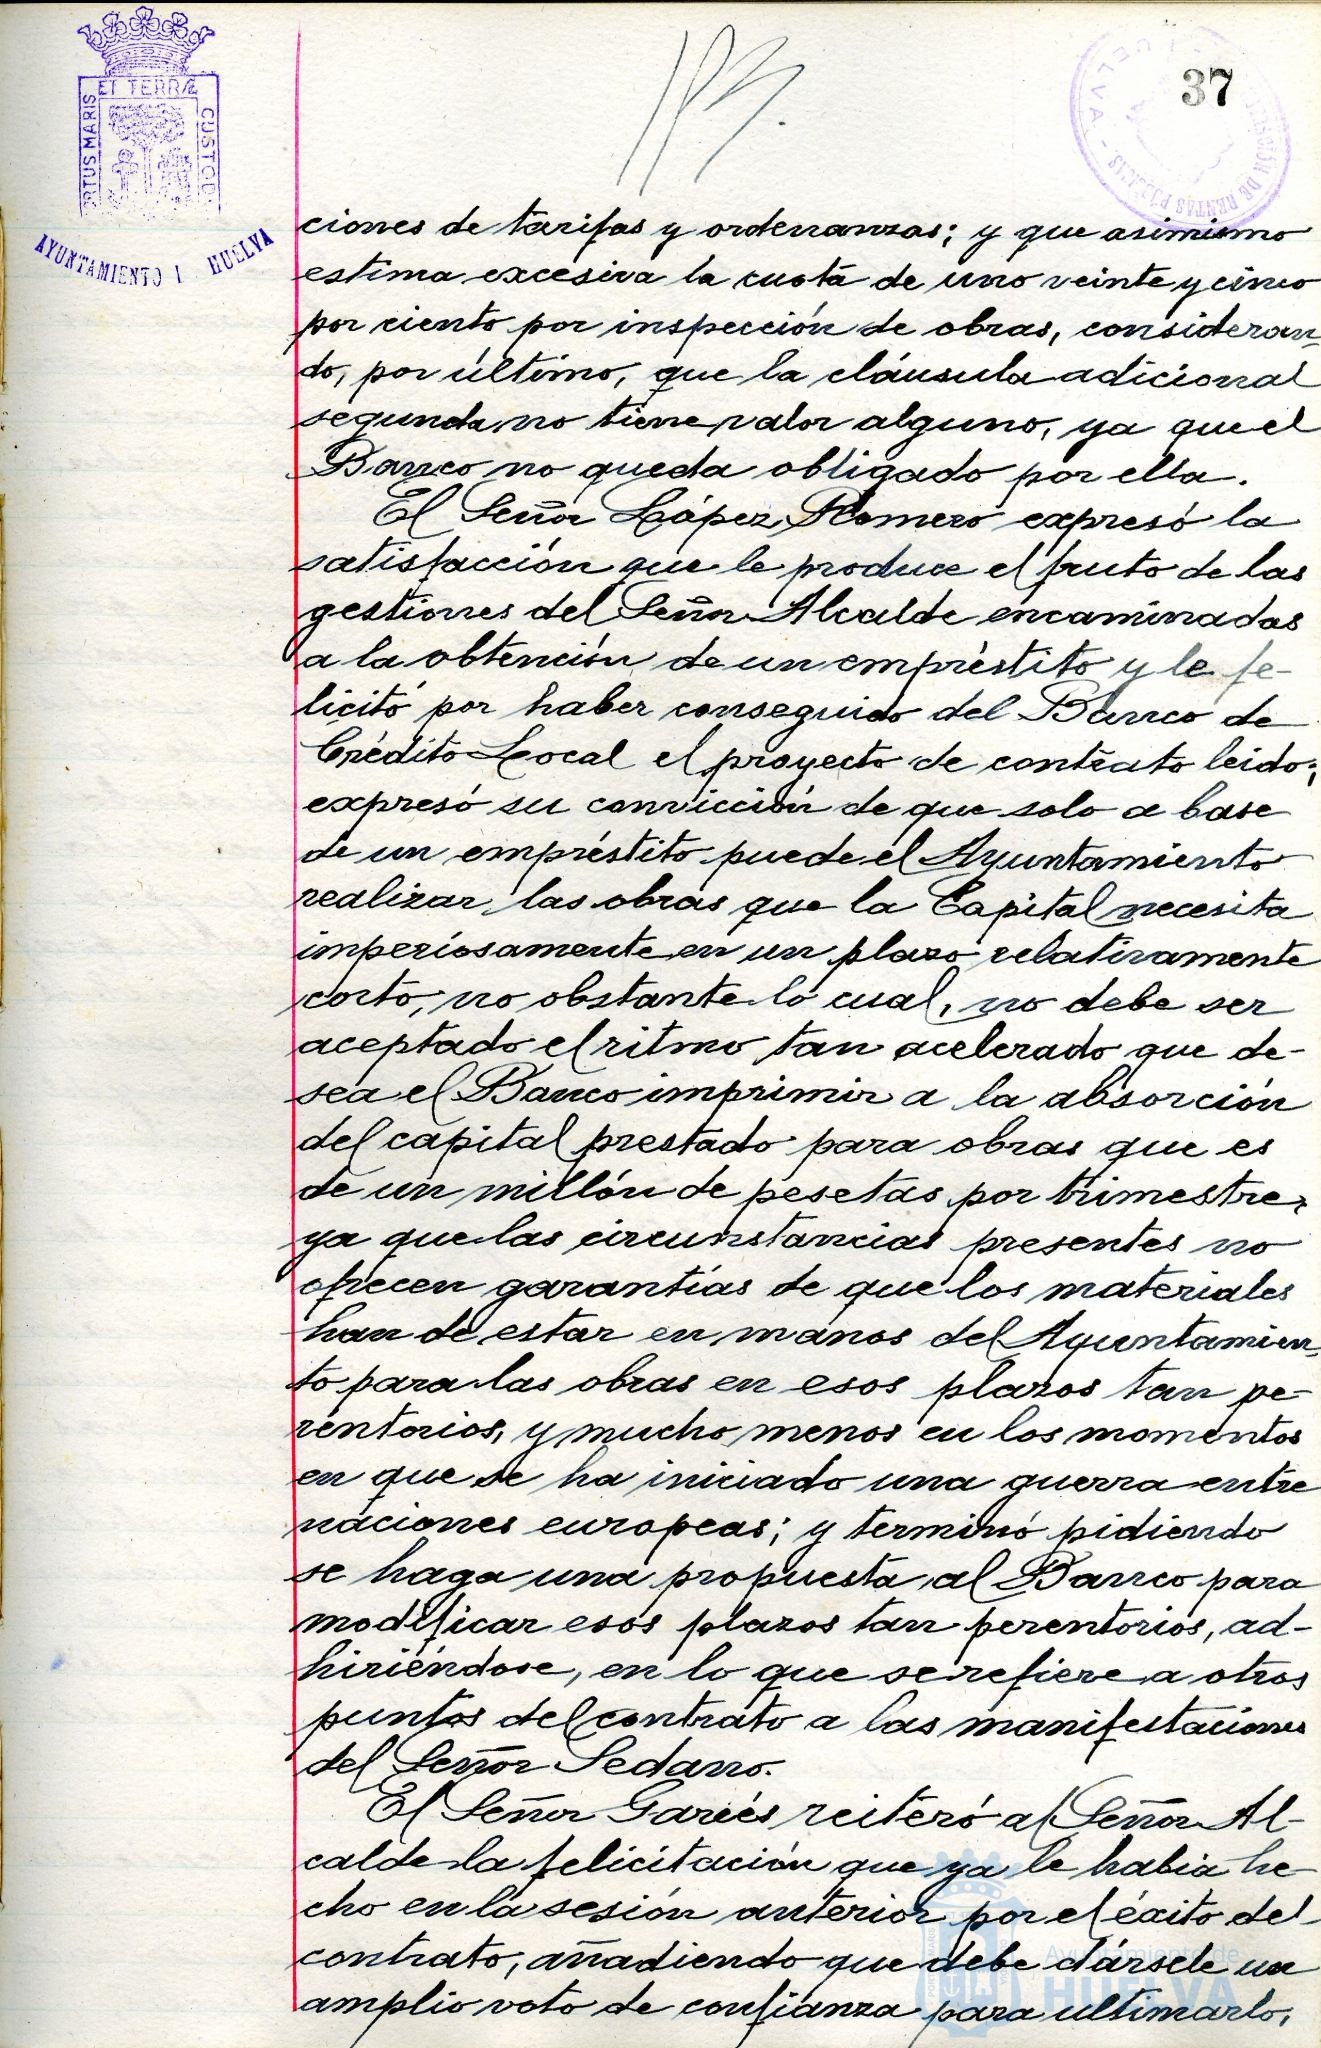 ET TERRÆ
RTUS MARIS
CUSTOD
AYUNTAMIENTO
HUELVA
37
ciones de tarifas y ordenanzas; y que asimismo
estima excesiva la cuota de uno veinte y cinco
por ciento por inspección de obras, consideran-
do, por último, que la cláusula adicional
segunda no tiene valor alguno, ya que el
Banco no queda obligado por ella.
El Señor López Romero expresó la
satisfacción que le produce el fruto de las
gestiones del Señor Alcalde encaminadas
a la obtención de un empréstito y le fe-
licitó por haber conseguido del Banco de
Crédito Local el proyecto de contrato leido;
expresó su convicción de que solo a base
de un empréstito puede el Ayuntamiento
realizar las obras que la Capital necesita
imperiosamente en un plazo relativamente
corto, no obstante lo cual, no debe ser
aceptado el ritmo tan acelerado que de-
sea el Banco imprimir a la absorción
del capital prestado para obras que es
de un millón de pesetas por trimestre,
ya que las circunstancias presentes no
ofrecen garantías de que los materiales
han de estar en manos del Ayuntamien-
to para las obras en esos plazos tan pe-
rentorios, y mucho menos en los momentos
en que se ha iniciado una guerra entre
naciones europeas; y terminó pidiendo
se haga una propuesta al Banco para
modificar esos plazos tan perentorios, ad-
hiriéndose, en lo que se refiere a otros
puntos del contrato a las manifestaciones
del Señor Sedano.
El Señor Garcés reiteró al Señor Al-
calde la felicitación que ya le habia he-
cho en la sesión anterior por el éxito del
contrato, añadiendo que debe dársele un
amplio voto de confianza para ultimarlo,
Ayuntamiento de
HUELVA